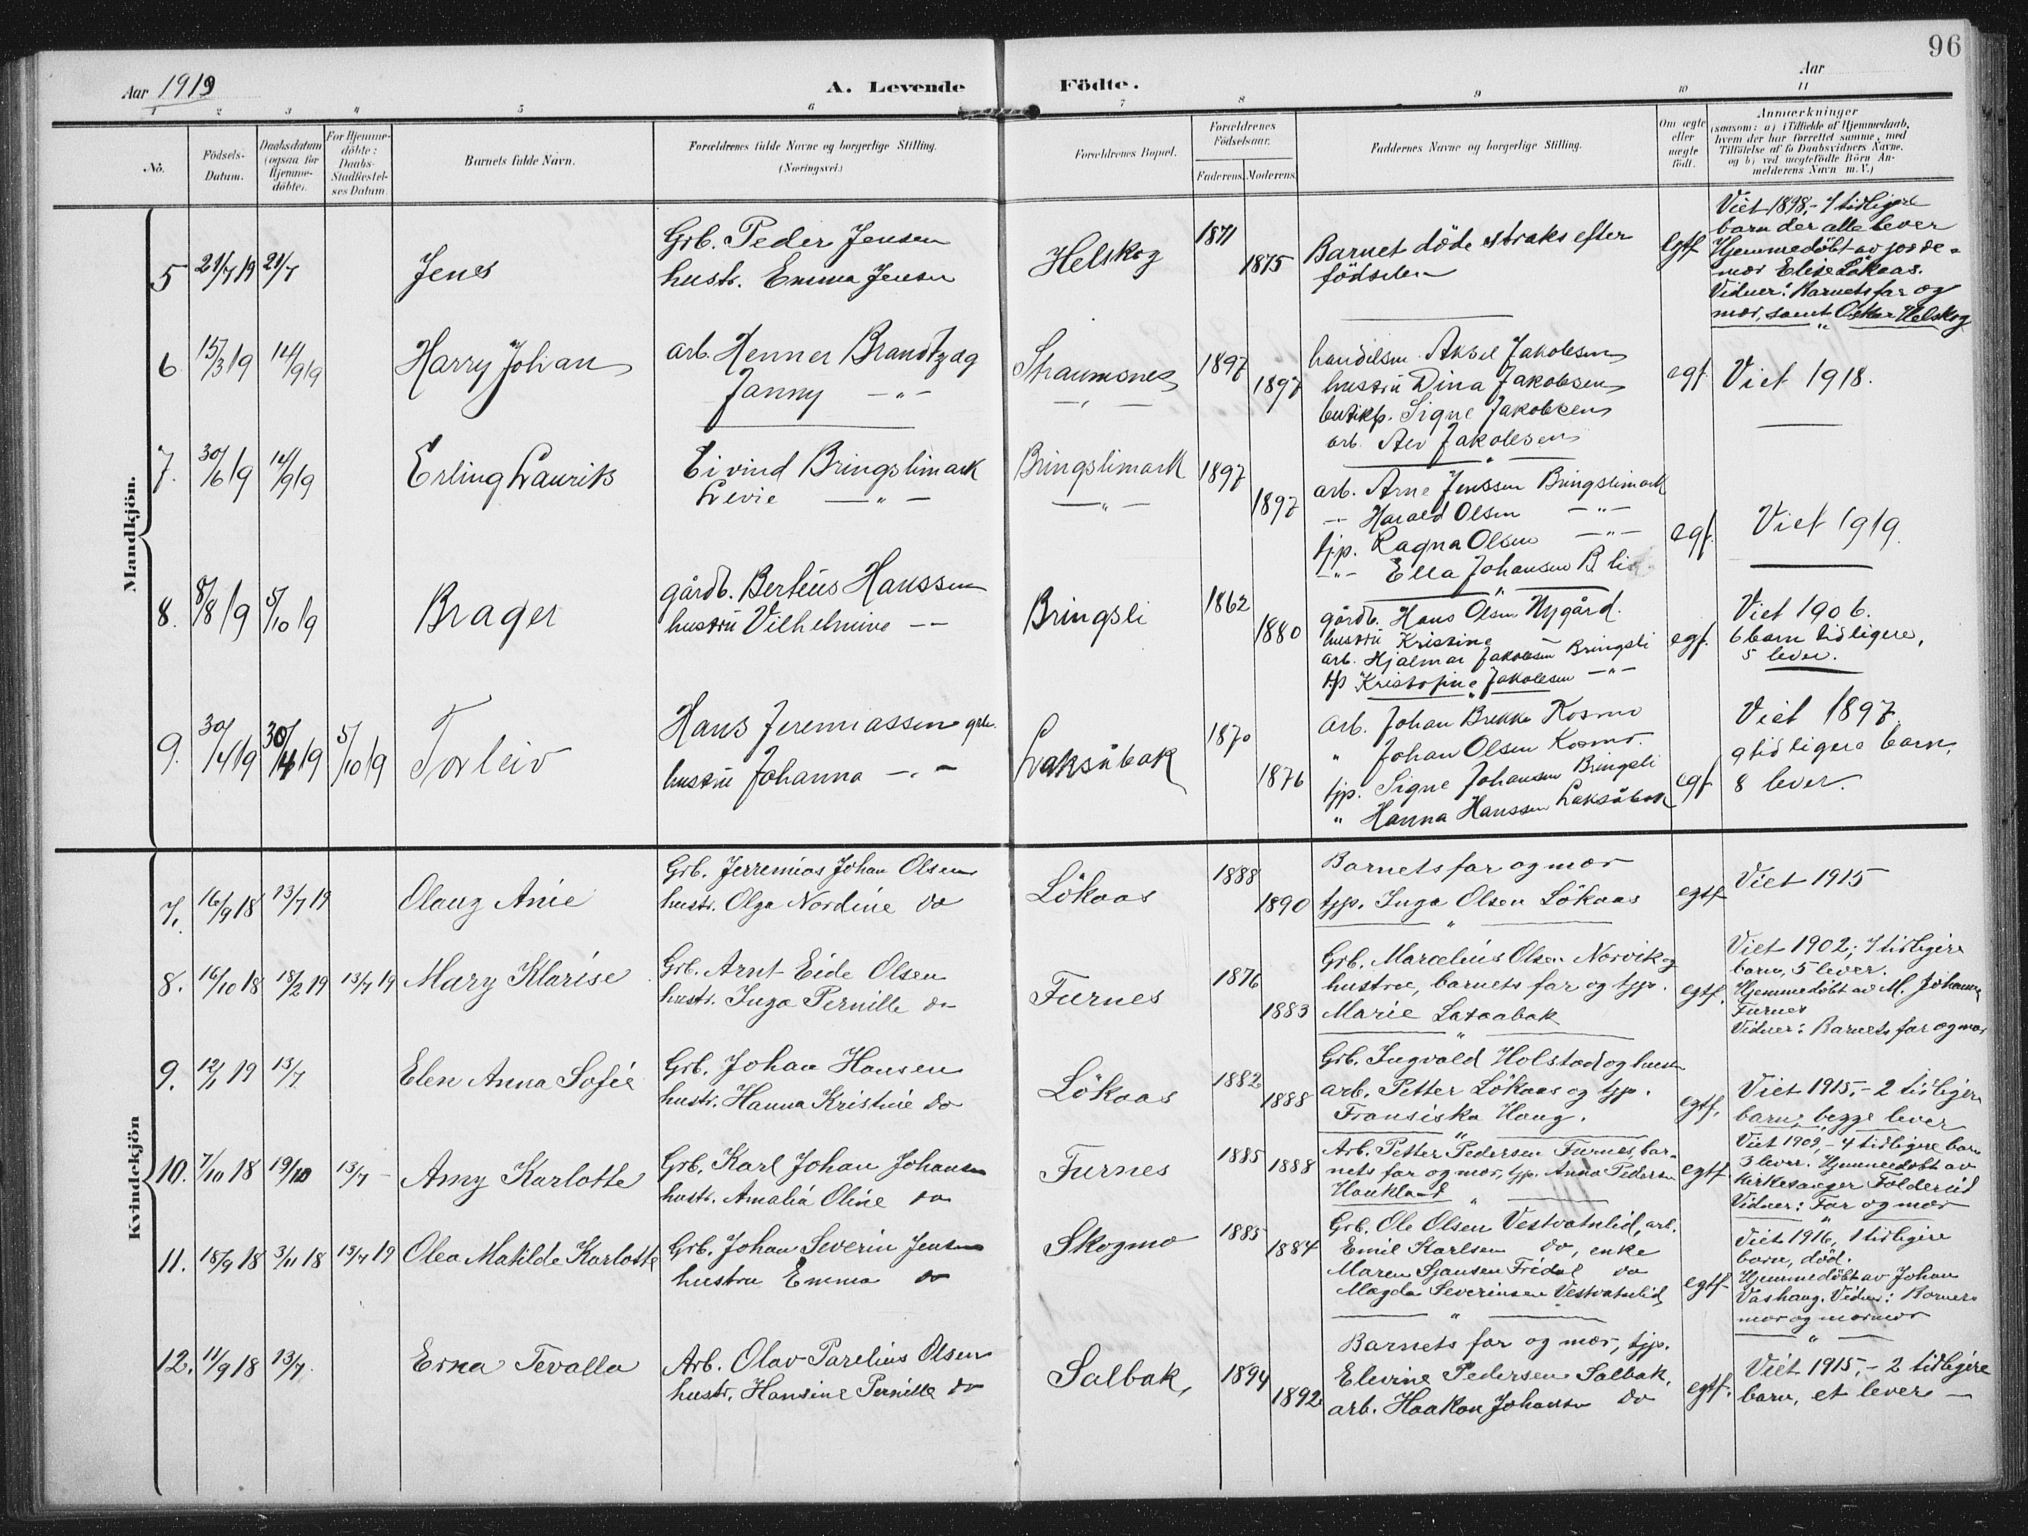 96
Aar 1919
A. Levende Födte.
Aar
1 2 3 4 5 6 7 8 9 10 11
No.
Födsels-Datum.
Daabsdatum (ogsaa for Hjemmedöbte).
For Hjemmedöbte: Daabs-Stadfæstelses Datum.
Barnets fulde Navn.
Forældrenes fulde Navne og borgerlige Stilling.
(Næringsvei.)
Forældrenes Bopæl.
Forældrenes Fødselsaar.
Faderens. Moderens.
Faddernes Navne og borgerlige Stilling.
Om ægte eller uægte født.
Anmærkninger
(saasom: a) i Tilfælde af Hjemmedaab, hvem der har forrettet samme, med Tilföielse af to Daabsvidners Navne, og b) ved uægtefödte Börn Anmelderens Navn m. V.)
Mandkjön.
5 21/7 19 21/7 Jens
Grb. Peder Jensen
hustr. Emma Jensen
Helskog 1871 1875
Barnet döde straks efter
födselen
egtf.
Viet 1898,- 7 tidligere
barn der alle lever
Hjemmedöbt av jorde-
mor Elise Lökaas.
Vidner: Barnets far og
mor, samt Oskar Helskog
6 15/3 19 14/9 19 Harry Johan
arb. Henner Brandtzæg
Janny -"-
Straumsnes 1897 1897
handelsm. Aksel Jakobsen
hustru Dina Jakobsen
butikkp. Signe Jakobsen
arb. Alv Jakobsen
egf. Viet 1918.
7. 30/6 19 14/9 19 Erling Laurits
Eivind Bringslimark
Levie -"-
Bringslimark 1897 1897
-"-
arb. Arne Jenssen Bringslimark
-"- Harald Olsen -"-
tjp. Ragna Olsen -"-
-"- Ella Johansen B.li
egf. Viet 1919.
8. 8/8 19 5/10 19 Brager
gårdb. Berteus Hanssen
hustru Vilhelmine -"-
Bringsli 1862 1880
gårdb. Hans Olsen Nygård.
hustru Kristine
arb. Hjalmar Jakobsen Bringsli
tjp Kristofine Jakobsen -"-
egf.
Viet 1906.
6 barn tidligere,
5 lever.
9. 30/4 19 30/4 19 5/10 19 Torleiv
Hans Jeremiassen grb.
hustru Johanna -"-
Laksåbak 1870 1876
arb. Johan Brekke Kosmo
" Johan Olsen Kosmo.
tjp. Signe Johansen Bringsli
" Hanna Hanssen Laksåbak
egf.
Viet 1897.
9 tidligere barn,
8 lever.
Kvindekjön
7. 16/9 18 13/7 19 Olaug Anie
Grb. Jerremias Johan Olsen
hustr. Olga Nordine do
Lökaas 1888 1890
Barnets far og mor
tjp. Inga Olsen Lökaas
egtf. Viet 1915
8. 16/10 18 18/2 19 13/7 19 Mary Klarise
Grb. Arnt Eide Olsen
hustr. Inga Pernille do
Furnes 1876 1883
Grb. Marcelius Olsen Norvik og
hustrue, barnets far og tjp.
Marie Laxaabak
egtf.
Viet 1902; 7 tidligere
barn, 5 lever.
Hjemmedöbt av M. Johansen
Furnes
Vidner: Barnets far og mor
9. 12/1 19 13/7 Elen Anna Sofie
Grb. Johan Hansen
hustr. Hanna Kristine do
Lökaas 1882 1888
Grb. Ingvald Holstad og hustr.
arb. Petter Lökaas og tjp.
Fransiska Haug.
egtf.
Viet 1915,- 2 tidligere
barn, begge lever
10. 7/10 18 19/10 13/7 - Amy Karlotte
Grb. Karl Johan Johansen
hustr. Amalia Oline do
Furnes 1885 1888
Arb. Petter Pedersen Furnes, bar-
nets far og mor, tjp. Anna Pedersen
Haukland
egtf.
Viet 1909,- 4 tidligere barn
3 lever. Hjemmedöbt av
kirkesanger Foldereid
Vidner: Far og mor
11. 18/9 18 3/11 18 13/7 19 Olea Matilde Karlotte
Grb. Johan Severin Jensen
hustru Emma do
Skogmo 1885 1884
Grb. Ole Olsen Vestvatnlid, arb.
Emil Karlsen do, enke
Maren Sjansen Fridal do
Magda Severinsen Vestvatnlid,
egtf.
Viet 1916, 1 tidligere
barn, död.
Hjemmedöbt av Johan
Vashaug. Vidner: Barnets
mor og mormor
12. 11/9 18 13/7. Erna Tevalla
Arb. Olav Parelius Olsen
hustr. Hansine Pernille do
Salbak, 1894 1892
Barnets far og mor, tjp.
Elevine Pedersen Salbak,
arb. Haakon Johansen do
egtf.
Viet 1915,- 2 tidligere
barn, et lever -